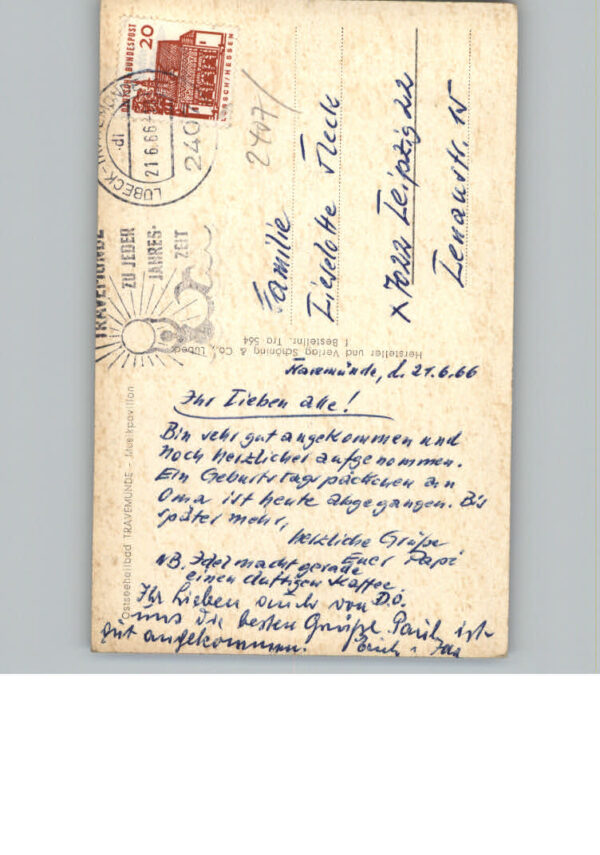 DEUTSCHE BUNDESPOST
20
LORSCH/HESSEN
LÜBECK-TRAVEMÜNDE
21.6.66
ip
240
2407/
TRAVEMÜNDE
ZU JEDER
JAHRES-
ZEIT
Familie
Lieselotte Fleck
x 7022 Leipzig N22
Lenaustr. 15
Hersteller und Verlag Schöning & Co., Lübeck
Bestellnr. Tra 564
Ostseeheilbad TRAVEMÜNDE - Musikpavillon
Travemünde, d. 21.6.66
Ihr Lieben alle!
Bin sehr gut angekommen und
noch herzlicher aufgenommen.
Ein Geburtstagspäckchen an
Oma ist heute abgegangen. Bis
später mehr,
herzliche Grüße
Euer Papi
NB. macht gerade
einen duftigen Kaffee.
Ihr Lieben auch von D.O.
uns die besten Grüße. ist
gut angekommen.